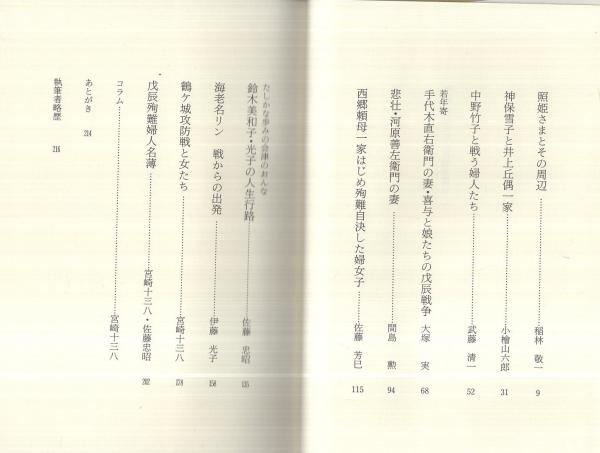 照姫さまとその周辺……………稲林敬一 9
神保雪子と井上丘偶一家……………小檜山六郎 31
中野竹子と戦う婦人たち……………武藤清一 52
若年寄
手代木直右衛門の妻・喜与と娘たちの戊辰戦争 大塚實 68
悲壮・河原善左衛門の妻……………間島勲 94
西郷頼母一家はじめ殉難自決した婦女子……………佐藤芳巳 115
たしかな歩みの会津のおんな
鈴木美和子・光子の人生行路……………佐藤忠昭 135
海老名リン 戦からの出発……………伊藤光子 158
鶴ケ城攻防戦と女たち……………宮崎十三八 178
戊辰殉難婦人名薄……………宮崎十三八・佐藤忠昭 202
コラム……………宮崎十三八
あとがき 214
執筆者略歴 216